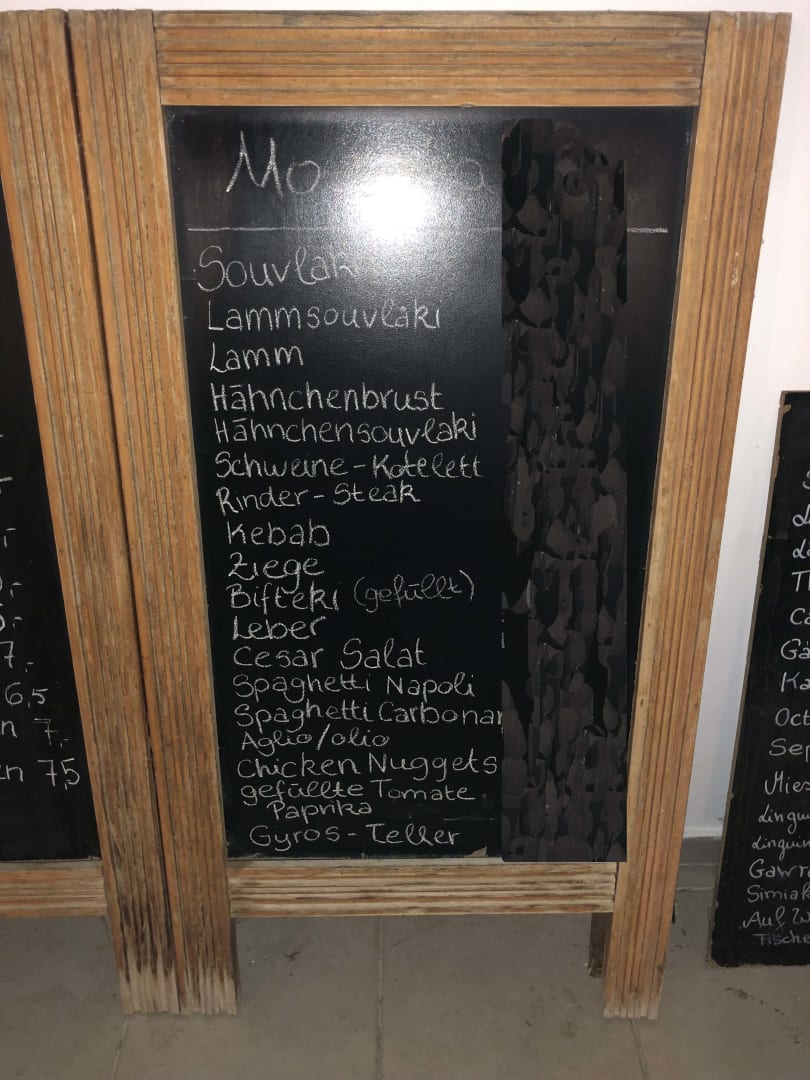 Souvlaki
Lammsouvlaki
Lamm
Hähnchenbrust
Hähnchensouvlaki
Schweine-Kotelett
Rinder-Steak
Kebab
Ziege
Bifteki (gefüllt)
Leber
Cesar Salat
Spaghetti Napoli
Spaghetti Carbonar
Aglio/olio
Chicken Nuggets
gefüllte Tomate
Paprika
Gyros-Teller
7,-
6,5
n 7,-
en 7,5
Oct
Sep
Mies
Lingu
Linguin
Gawro
Simiak
Auf W
Tische